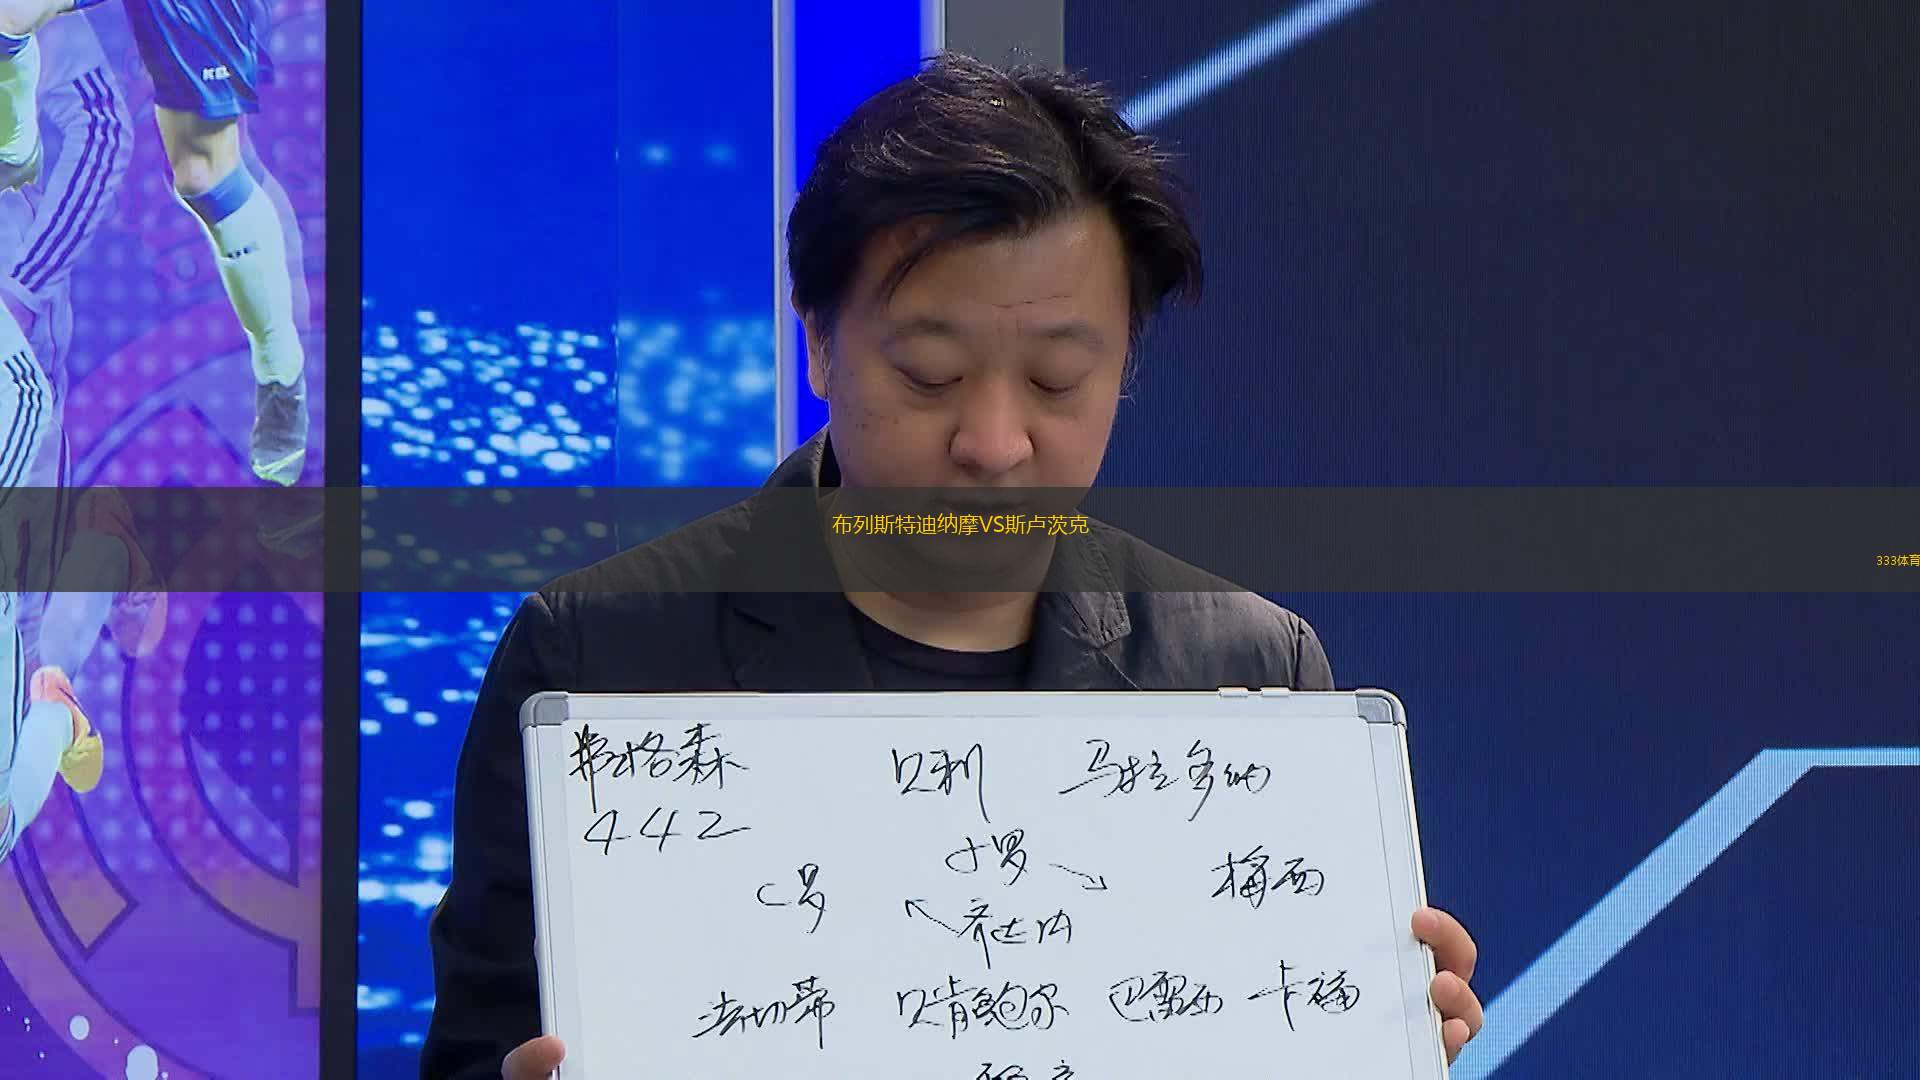 KEL
布列斯特迪纳摩VS斯卢茨克
333体育
弗格森 贝利 马拉多纳
442
小罗
C罗 梅西
齐达内
法切蒂 贝肯鲍尔 巴雷西 卡福